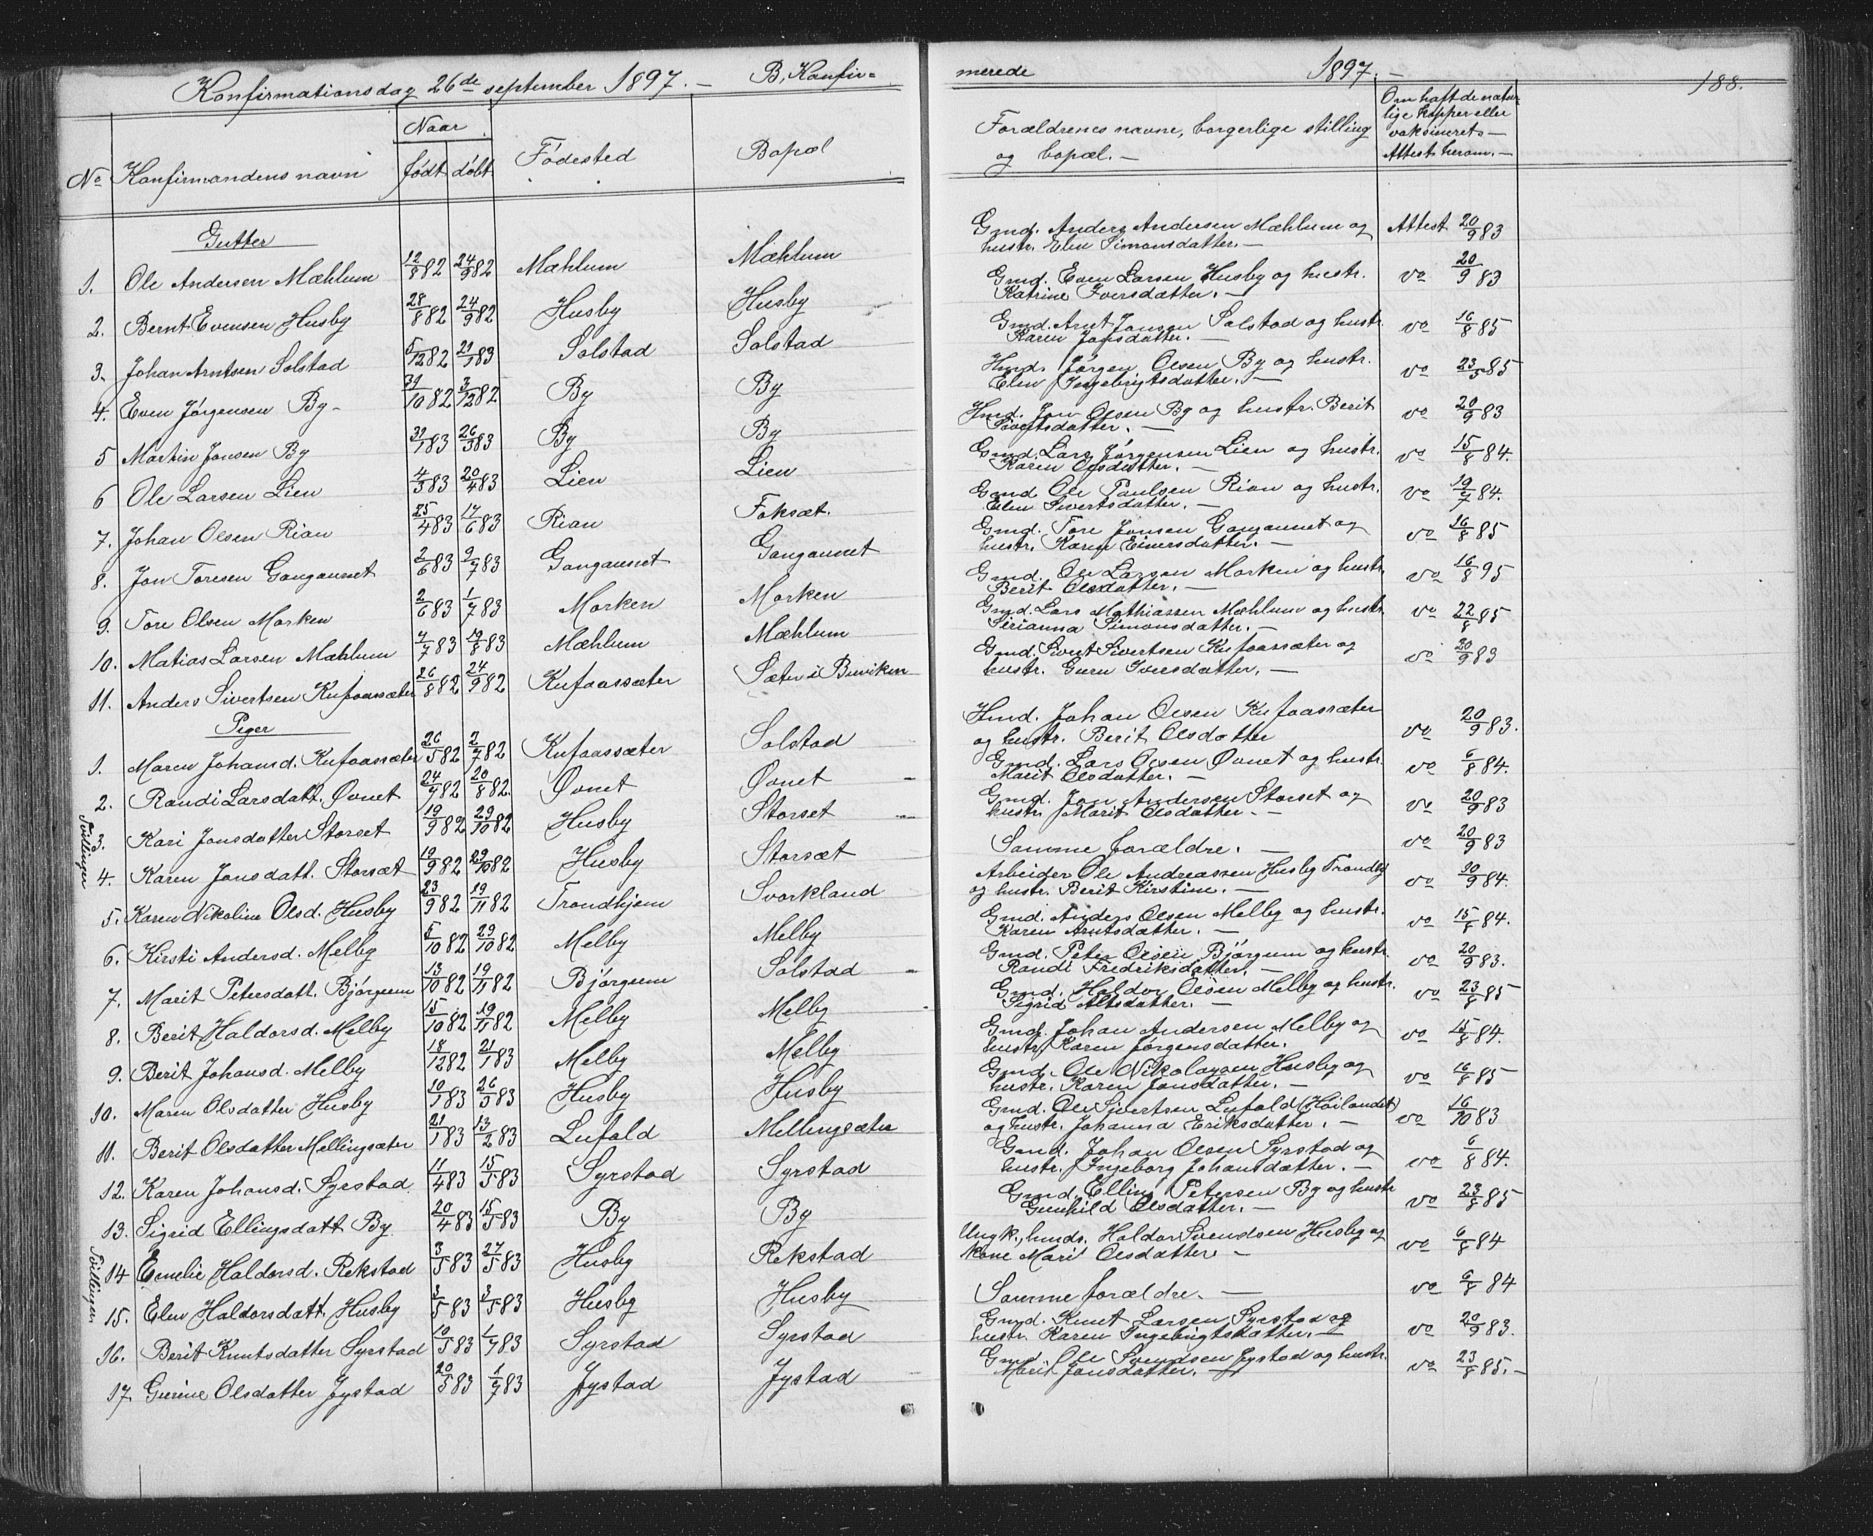 Konfirmationsdag 26de september 1897. — B. Konfir=
merede 1897. — 188.
No Konfirmandens navn Naar født døbt Fødested Bopæl
Forældrenes navne, borgerlige stilling og bopæl. —
Om haft de naturlige kopper eller vaksineret — Attest herom. —
Gutter
1. Ole Andersen Mæhlum 12/8 82 24/9 82 Mæhlum Mæhlum Gmd. Anders Andersen Mæhlum og hustr. Elen Simonsdatter. — Attest 20/9 83
2. Bernt Evensen Husby 28/8 82 24/9 82 Husby Husby Gmd. Even Larsen Husby og hustr. Katrine Iversdatter. — do 20/9 83
3. Johan Arntsen Solstad 5/12 82 21/1 83 Solstad Solstad Gmd. Arnt Jonsen Solstad og hustr. Karen Jonsdatter. — do 16/8 85
4. Even Jørgensen By — 31/10 82 3/12 82 By By Hmd. Jørgen Olsen By og hustr. Elen Ingebrigtsdatter. — do 23/5 85
5 Martin Jonsen By 31/1 83 26/3 83 By By Hmd. Jon Olsen By og hustr. Berit Sivertsdatter. — do 20/9 83
6 Ole Larsen Lien 4/3 83 20/4 83 Lien Lien Gmd. Lars Jørgensen Lien og hustr. Karen Olsdatter. — do 15/8 84.
7. Johan Olsen Rian 25/4 83 17/6 83 Rian Foksæt. Gmd Ole Paulsen Rian og hustr. Elen Sivertsdatter. — do 19/7 84.
8. Jon Toresen Gangaunet 2/6 83 9/7 83 Gangaunet Gangaunet Gmd. Tore Jonsen Gangaunet og hustr. Karen Einersdatter. — do 16/8 85
9. Tore Olsen Morken 2/6 83 1/7 83 Morken Morken Gmd. Ole Larsen Morken og hustr. Berit Olsdatter. — do 16/8 95
10. Matias Larsen Mæhlum 7/7 83 19/8 83 Mæhlum Mæhlum Gmd. Lars Mathiassen Mæhlum og hustr. Sirianna Simonsdatter. — do 22/8 95
11. Anders Sivertsen Kufaassæter 26/8 82 24/9 82 Kufaassæter Sæter i Buviken Gmd. Sivert Sivertsen Kufaassæter og hustr. Guru Iversdatter. — do 20/9 83
Piger
1. Maren Johansd. Kufaassæter 26/5 82 2/7 82 Kufaassæter Solstad Hmd. Johan Olsen Kufaassæter og hustr. Berit Olsdatter do 20/9 83.
2. Randi Larsdatt. Øvnet 24/7 82 20/8 82. Øvnet Øvnet Gmd. Lars Olsen Øvnet og hustr. Marit Olsdatter. — do 6/8 84.
Tvillinger
3. Kari Jonsdatter Storset 19/9 82 29/10 82 Husby Storset Gmd. Jon Andersen Storset og hustr. Marit Olsdatter. — do 20/9 83
4. Karen Jonsdatt. Storsæt 19/9 82 29/10 82 Husby Storsæt Samme forældre. — do 20/9 83
5. Karen Nikoline Olsd. Husby 23/9 82 19/11 82 Trondhjem Svorkland Arbeider Ole Andreassen Husby Trondhj og hustr. Berit Kirstine. — do 30/9 84.
6. Kirsti Andersd. Melby 5/10 82 29/10 82 Melby Melby Gmd. Anders Olsen Melby og hustr. Karen Arntsdatter. — do 15/8 84.
7. Marit Petersdatt. Bjørgum 13/10 82 19/11 82 Bjørgum Solstad Gmd. Peter Olsen Bjørgum og hustr. Randi Fredriksdatter. — do 20/9 83.
8. Berit Haldorsd. Melby 15/10 82 19/11 82 Melby Melby Gmd. Haldor Olsen Melby og hustr. Sigrid Altsdatter. — do 23/8 85
9. Berit Johansd. Melby 18/12 82 21/1 83 Melby Melby Gmd. Johan Andersen Melby og hustr. Karen Jørgensdatter. do 15/8 84.
10. Maren Olsdatter Husby 19/1 83 26/3 83 Husby Husby Gmd. Ole Nikolaysen Husby og hustr. Karen Jonsdatter. — do 16/8 85
11. Berit Olsdatter Mellingsæter 21/1 83 13/2 83 Lufald Mellingsæter Gmd. Ole Sivertsen Lufald (Høilandet) og hustr. Johanna Eriksdatter. — do 16/10 83
12. Karen Johansd. Syrstad 11/4 83 15/5 83 Syrstad Syrstad Gmd. Johan Olsen Syrstad og hustr. Ingeborg Johansdatter. — do 6/8 84.
13. Sigrid Ellingsdatt. By 20/4 83 15/5 83 By By Gmd. Elling Petersen By og hustr Gunhild Olsdatter. — do 23/8 85
Tvillinger
14 Emelie Haldorsd. Rekstad 3/5 83 27/5 83 Husby Rekstad Ungk., hmds. Haldor Svendsen Husby og kone Marit Olsdatter — do 6/8 84
15. Elen Haldorsdatt. Husby 3/5 83 3/5 83 Husby Husby Samme forældre. — do 6/8 84
16. Berit Knutsdatter Syrstad 19/5 83 1/7 83 Syrstad Syrstad Gmd. Knut Larsen Syrstad og hustr. Karen Ingebrigtsdatter. — do 20/9 83.
17. Gurine Olsdatter Jystad 20/5 83 1/7 83 Jystad Jystad Gmd. Ole Svendsen Jystad og hustr. Marit Jonsdatter. — do 23/8 85. —